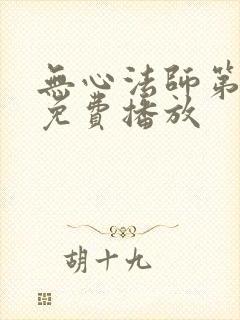 無心法師第
免費播放
胡十九